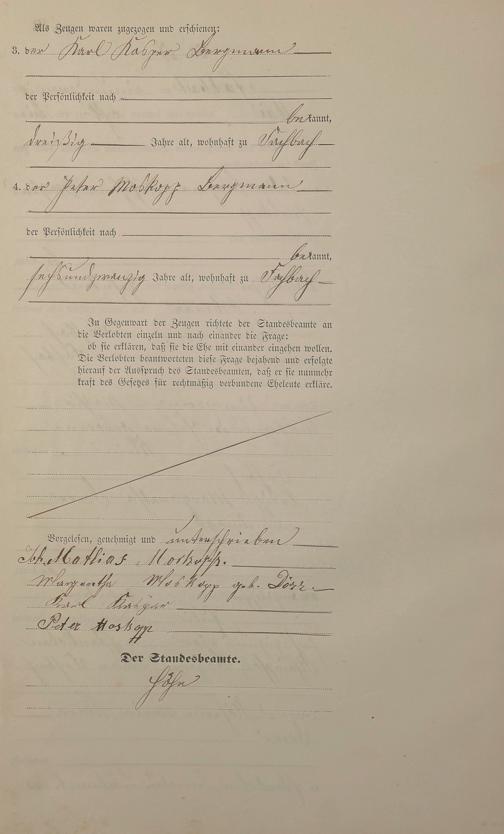 Als Zeugen waren zugezogen und erschienen:
3. der Karl Kasper Bergmann
der Persönlichkeit nach
bekannt,
dreißig Jahre alt, wohnhaft zu Fachbach
4. der Peter Moskopp Bergmann
der Persönlichkeit nach
bekannt,
sechsundzwanzig Jahre alt, wohnhaft zu Fachbach
In Gegenwart der Zeugen richtete der Standesbeamte an
die Verlobten einzeln und nach einander die Frage:
ob sie erklären, daß sie die Ehe mit einander eingehen wollen.
Die Verlobten beantworteten diese Frage bejahend und erfolgte
hierauf der Ausspruch des Standesbeamten, daß er sie nunmehr
kraft des Gesetzes für rechtmäßig verbundene Eheleute erkläre.
Vorgelesen, genehmigt und unterschrieben
Joh. Mathias Moskopp.
Margaretha Moskopp geb. Dörr
Karl Kasper
Peter Moskopp
Der Standesbeamte.
Höhn